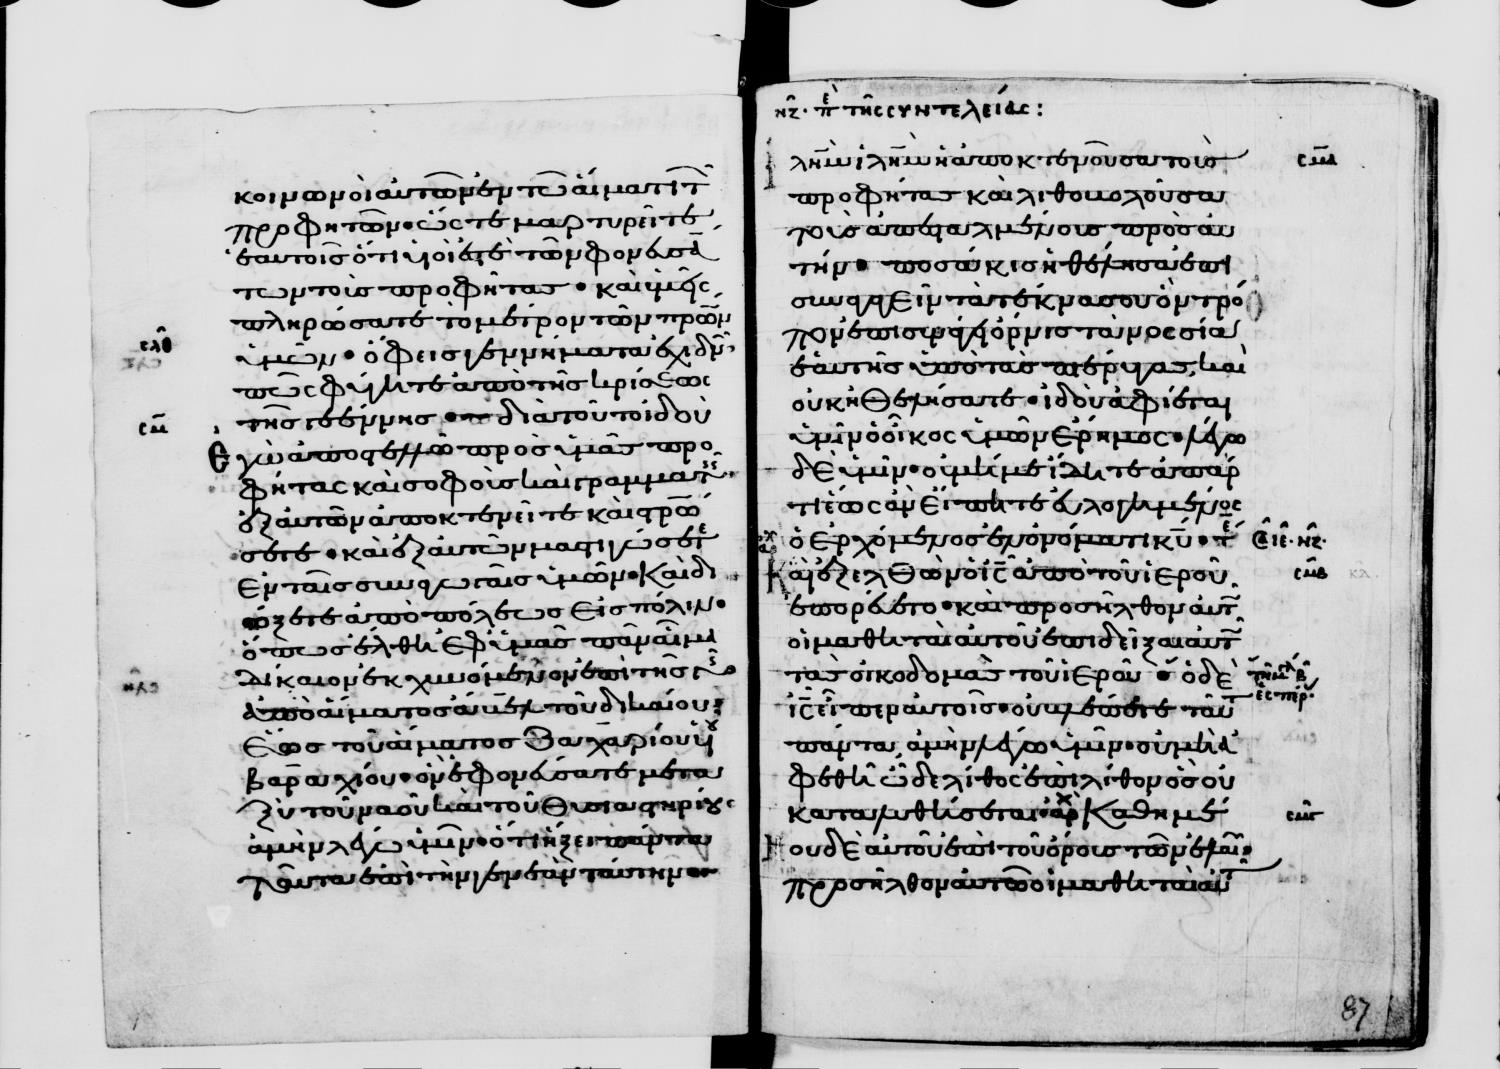 κοινωνοὶ αὐτῶν ἐν τῶ αἵματι τ
προφητῶν· ὥστε μαρτυρεῖτε
ἑαυτοῖς ὅτι υἱοί ἐστε τῶν φονευσά
των τοὺς προφήτας · καὶ ὑμεῖς
πληρώσατε τὸ μέτρον τῶν πρῶν
σλθ
ὑμῶν · ὄφεις γεννήματα ἐχιδνῶ
πῶς φύγητε ἀπὸ τῆς κρίσεως
σμ
τῆς γεέννης · διὰ τοῦτο ἰδοὺ
Ἐγὼ ἀποστέλλω πρὸς ὑμᾶς προ
φήτας καὶ σοφοὺς καὶ γραμματεῖς
ἐξ αὐτῶν ἀποκτενεῖτε καὶ στρω
σετε · καὶ ἐξ αὐτῶν μαστιγώσετε
ἐν ταῖς συναγωγαῖς ὑμῶν · Καὶ δι
ώξετε ἀπὸ πόλεως εἰς πόλιν ·
ὅπως ἔλθη ἐφ ὑμᾶς πᾶν αἷμα
δίκαιον ἐκχυνόμενον ἐπὶ τῆς γῆς
ἀπὸ αἵματος ἄβελ τοῦ δικαίου
ἕως τοῦ αἵματος ζαχαρίου υἱ
βαραχίου · ὃν ἐφονεύσατε μετα
ξὺ τοῦ ναοῦ καὶ τοῦ θυσιαστηρίου
ἀμὴν λέγω ὑμῖν · ὅτι ἥξει πάντα
ταῦτα ἐπὶ τὴν γενεὰν ταύτην
ηζ· τῆς συντελείας :
λημ ιλημ ἡ ἀποκτένουσα τοὺς
σμα
προφήτας καὶ λιθοβολοῦσα
τοὺς ἀπεσταλμένους πρὸς αὐ
τήν · ποσάκις ἠθέλησα ἐπι
συναγαγεῖν τὰ τέκνα σου ὃν τρό
πον ἐπισυνάγει ὄρνις τὰ νοσσία
ἑαυτῆς ὑπὸ τὰς πτέρυγας, καὶ
οὐκ ἠθελήσατε · ἰδοὺ ἀφίεται
ὑμῖν ὁ οἶκος ὑμῶν ἔρημος · λέγω
δὲ ὑμῖν · οὐ μή με ἴδητε ἀπάρ
τι ἕως ἂν εἴπητε εὐλογημένος
ὁ ἐρχόμενος ἐν ὀνόματι κυ ·
Καὶ ἐξελθὼν ὁ ις ἀπὸ τοῦ ἱεροῦ
σμβ
ἐπορεύετο · καὶ προσῆλθον αὐτ
οἱ μαθηταὶ αὐτοῦ ἐπιδεῖξαι αὐτ
τὰς οἰκοδομὰς τοῦ ἱεροῦ · ὁ δὲ
ις εἶπεν αὐτοῖς · οὐ βλέπετε ταῦ
πάντα, ἀμὴν λέγω ὑμῖν · οὐ μὴ ἀ
φεθῆ ὧδε λίθος ἐπὶ λίθον ὃς οὐ
καταλυθήσεται · Καθημέ
σμγ
νου δὲ αὐτοῦ ἐπὶ τοῦ ὄρους τῶν ἐλαι
προσῆλθον αὐτῶ οἱ μαθηταὶ αὐτ
87